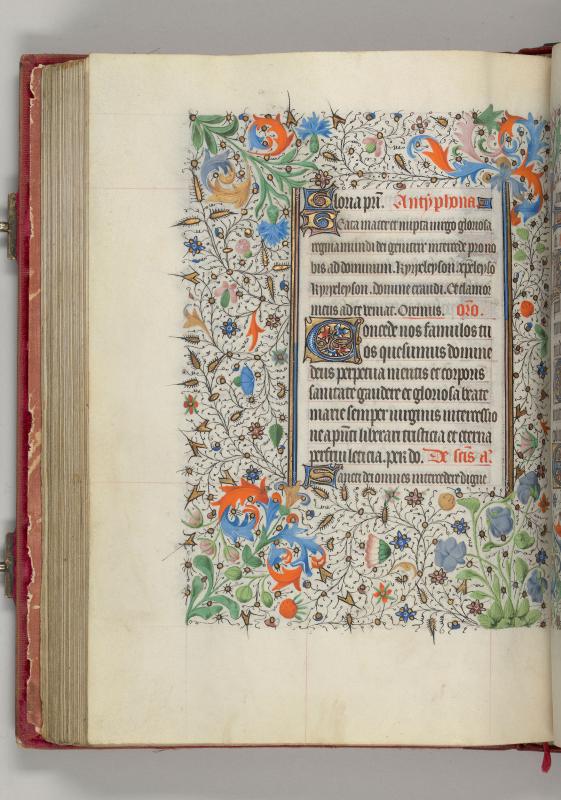 Gloria pri. Antyphona
Beata mater et nupta virgo gloriosa
regina mundi dei genitrix intercede pro no
bis ad dominum. Kyrieleyson. xpeleyso
Kyrieleyson. domine exaudi. Et clamor
meus ad te veniat. Oremus. oro.
Concede nos famulos tu
os quesumus domine
deus perpetua mentis et corporis
sanitate gaudere et gloriosa beate
marie semper virginis intercessio
ne a pnti liberari tristicia et eterna
perfrui leticia. per do. De scis a.
Sancti dei omnes intercedere digne